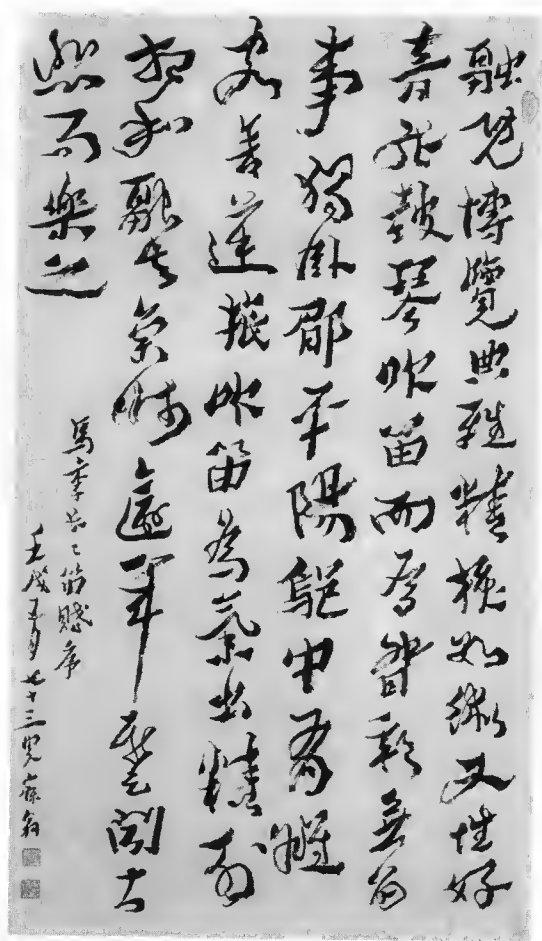 融既博覽典雅精核數術又性好
音能鼓琴吹笛而為督郵無留
事獨臥郿平陽鄔中有雒
客舍逆旅吹笛為氣出精列
相和融去京師逾年暫聞甚
悲而樂之
馬季長長笛賦序
壬戌五月七十三叟翁